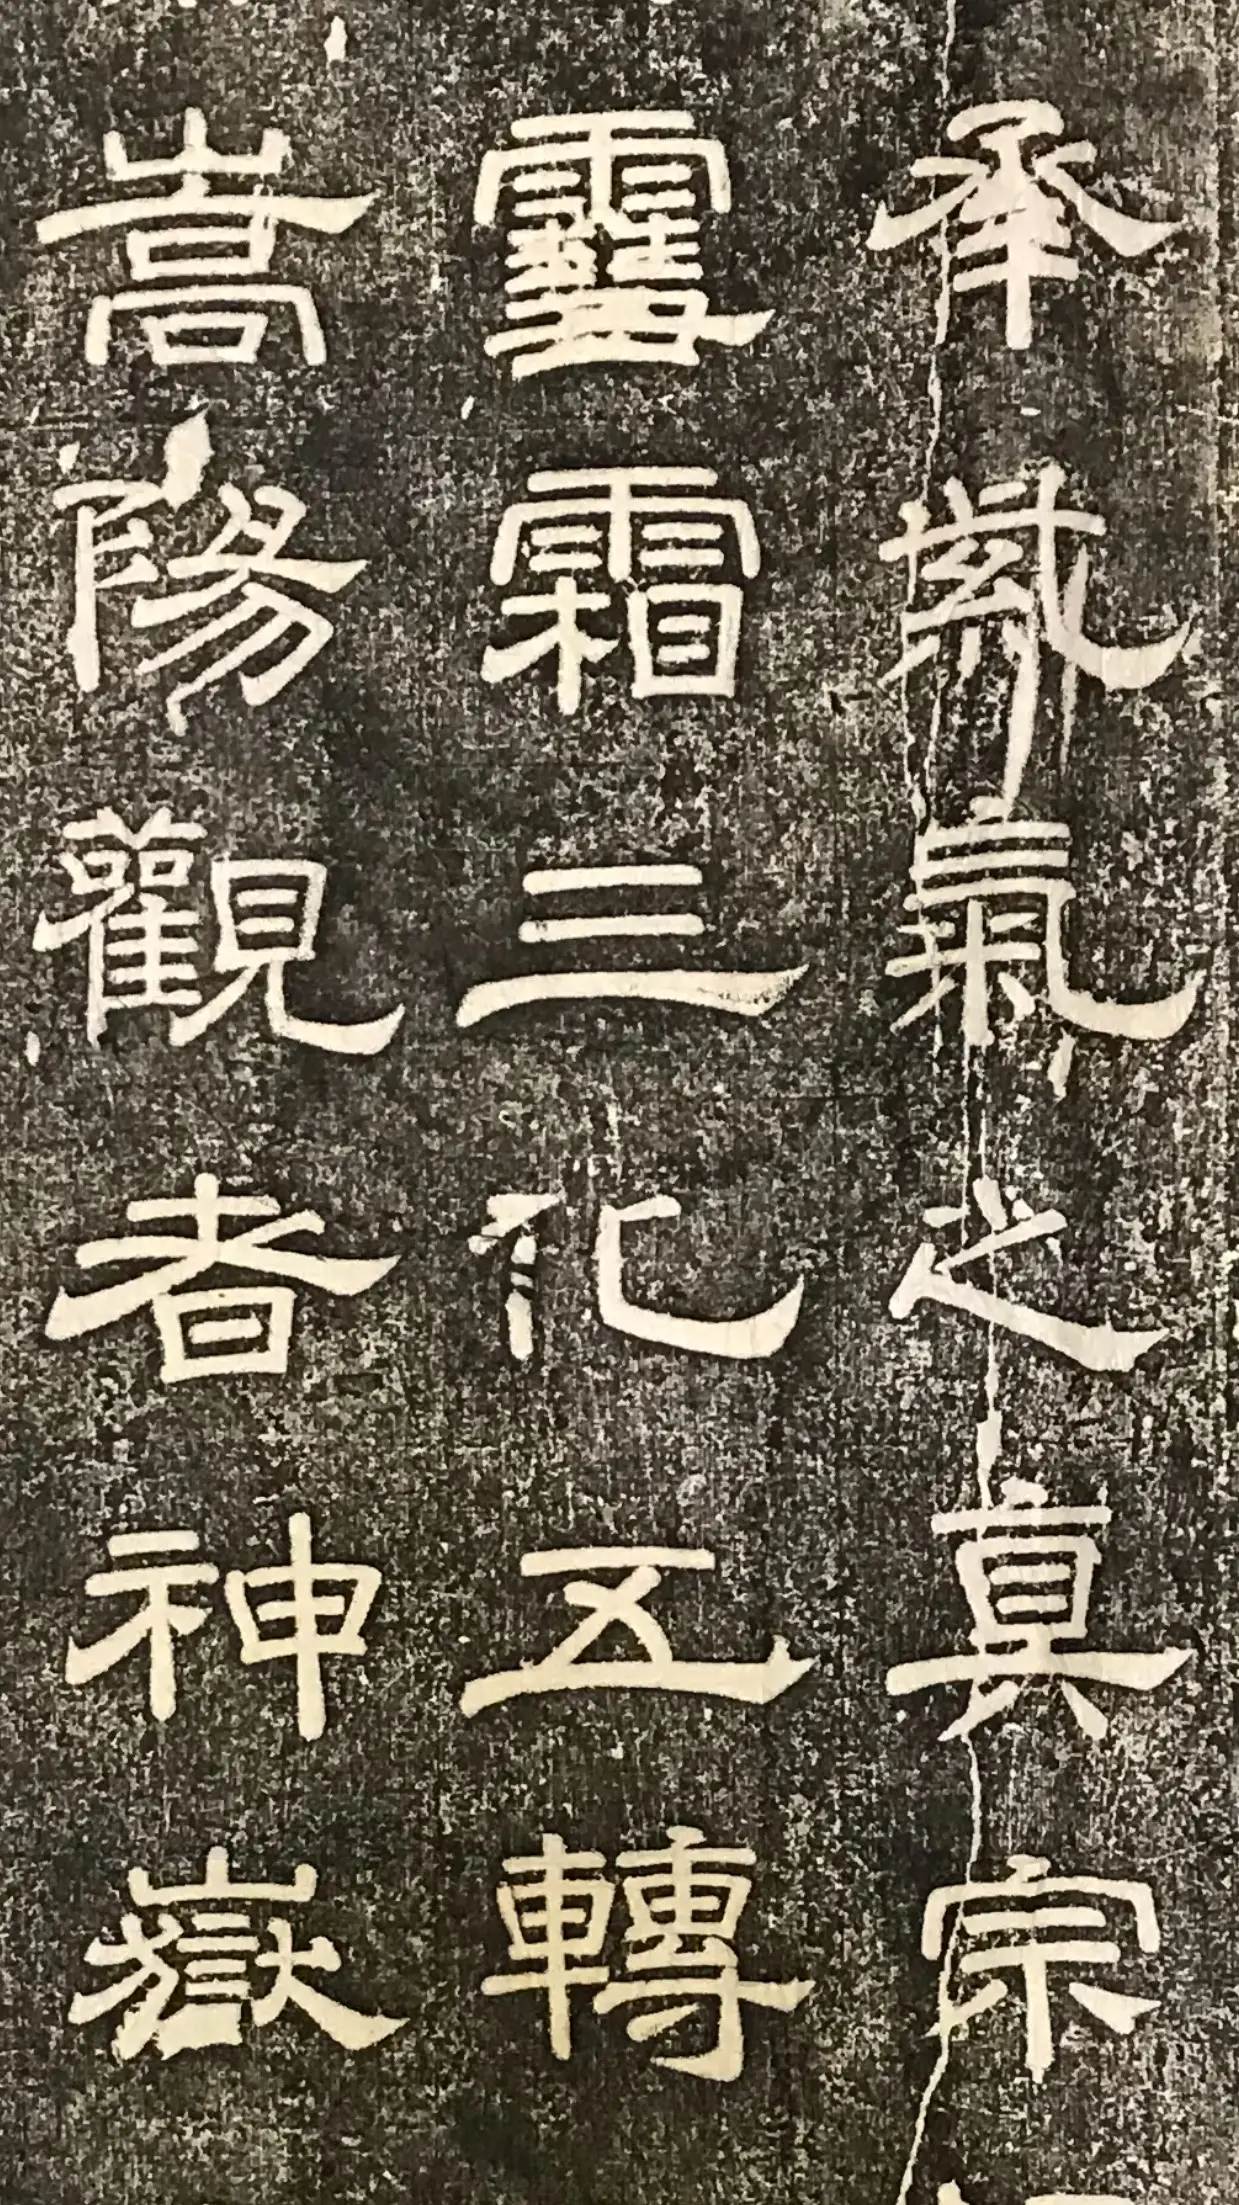 承紫氣之真宗
䨮霜三化五轉
嵩陽觀者神嶽